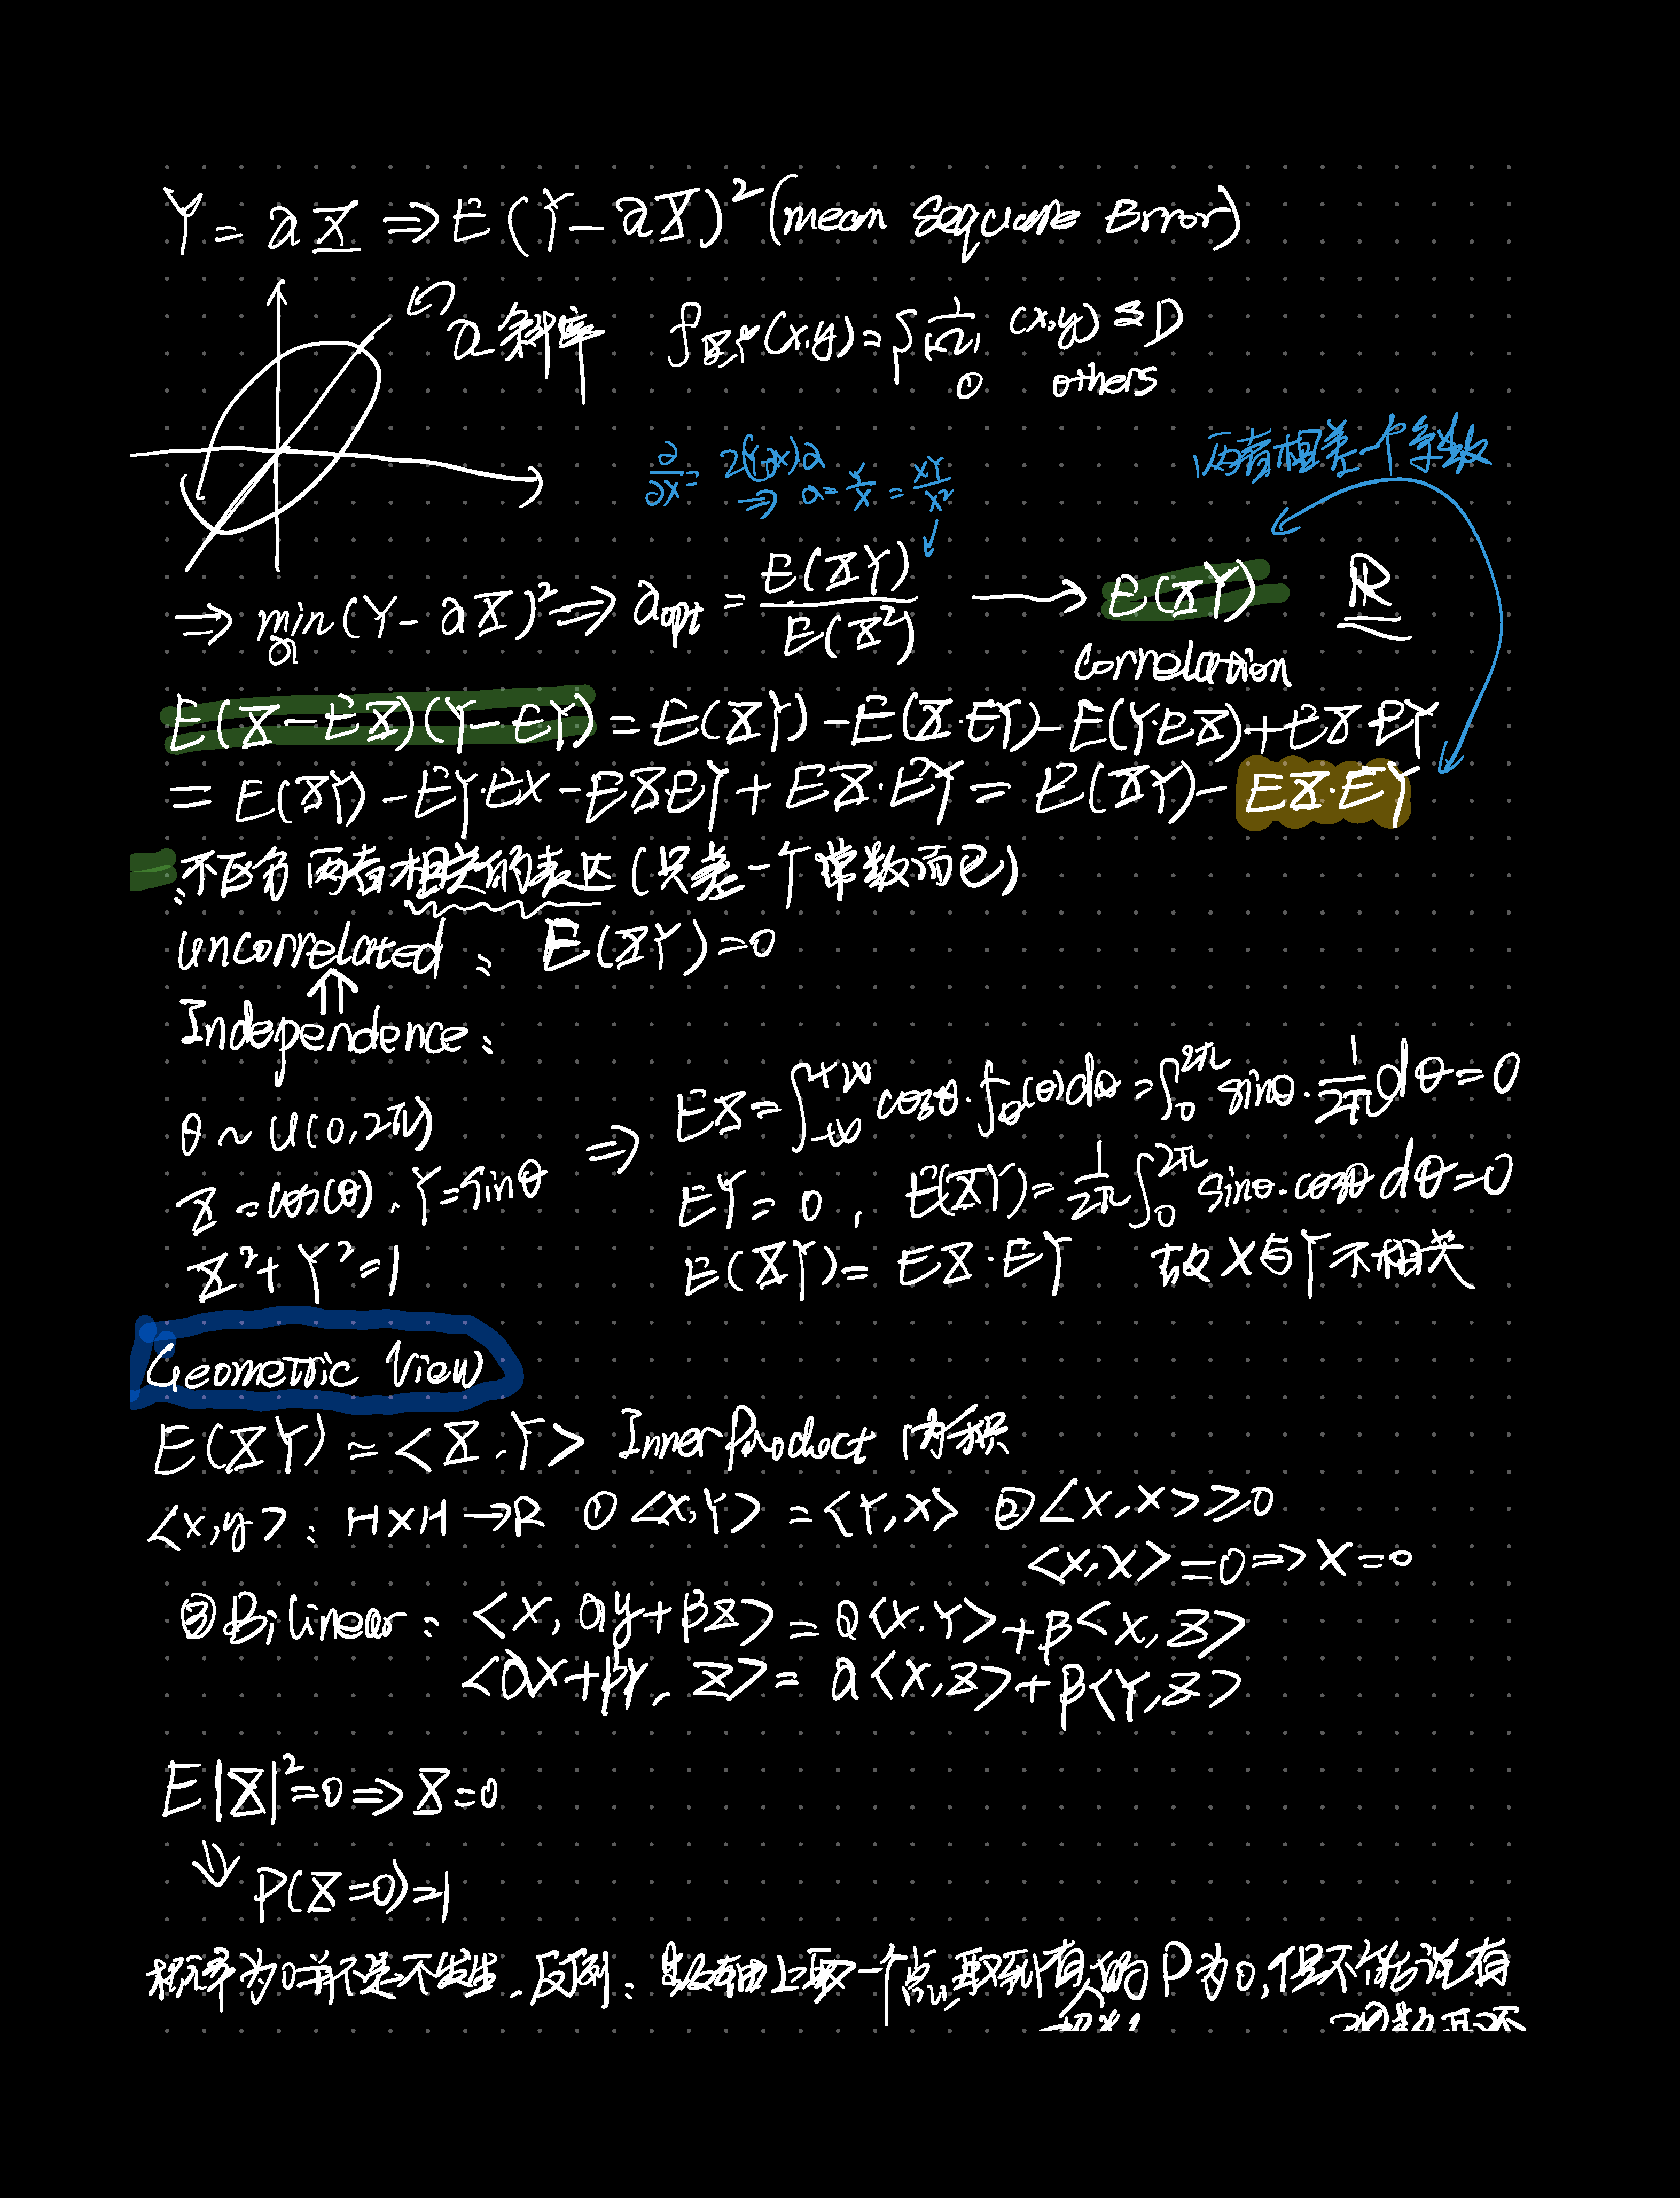 Y = aX ⇒ E(Y-aX)² (mean Sequare Error)
a 斜率 f_{X,Y}(x,y) = { 1/|Ω| (x,y) ∈ D
0 others
∂/∂x = 2(Y-aX)·a
⇒ a = Y/X = XY/X²
两者相差一个常数
⇒ min_a (Y-aX)² ⇒ a_opt = E(XY)/E(X²) → E(XY) R
correlation
E(X-EX)(Y-EY) = E(XY) - E(X·EY) - E(Y·EX) + EX·EY
= E(XY) - EY·EX - EX·EY + EX·EY = E(XY) - EX·EY
∴不区分 两者相关的表达 (只差一个常数而已)
uncorrelated : E(XY) = 0
⇑
Independence :
θ ~ U(0,2π) ⇒ EX = ∫_{-∞}^{+∞} cosθ·f_θ(θ)dθ = ∫_0^{2π} sinθ·1/2π dθ = 0
X = cos(θ), Y = sinθ EY = 0, E(XY) = 1/2π ∫_0^{2π} sinθ·cosθ dθ = 0
X² + Y² = 1 E(XY) = EX·EY 故X与Y不相关
Geometric View
E(XY) = <X,Y> Inner Product 内积
<x,y> : H×H → R ① <X,Y> = <Y,X> ② <X,X> ≥ 0
<X,X> = 0 ⇒ X = 0
③ Bilinear : <X, ay+βZ> = a<X,Y> + β<X,Z>
<aX+βY, Z> = a<X,Z> + β<Y,Z>
E|X|² = 0 ⇒ X = 0
⇓ P(X=0) = 1
概率为0并不是不发生, 反例: 数轴上取一个点, 取到有的P为0, 但不能说有